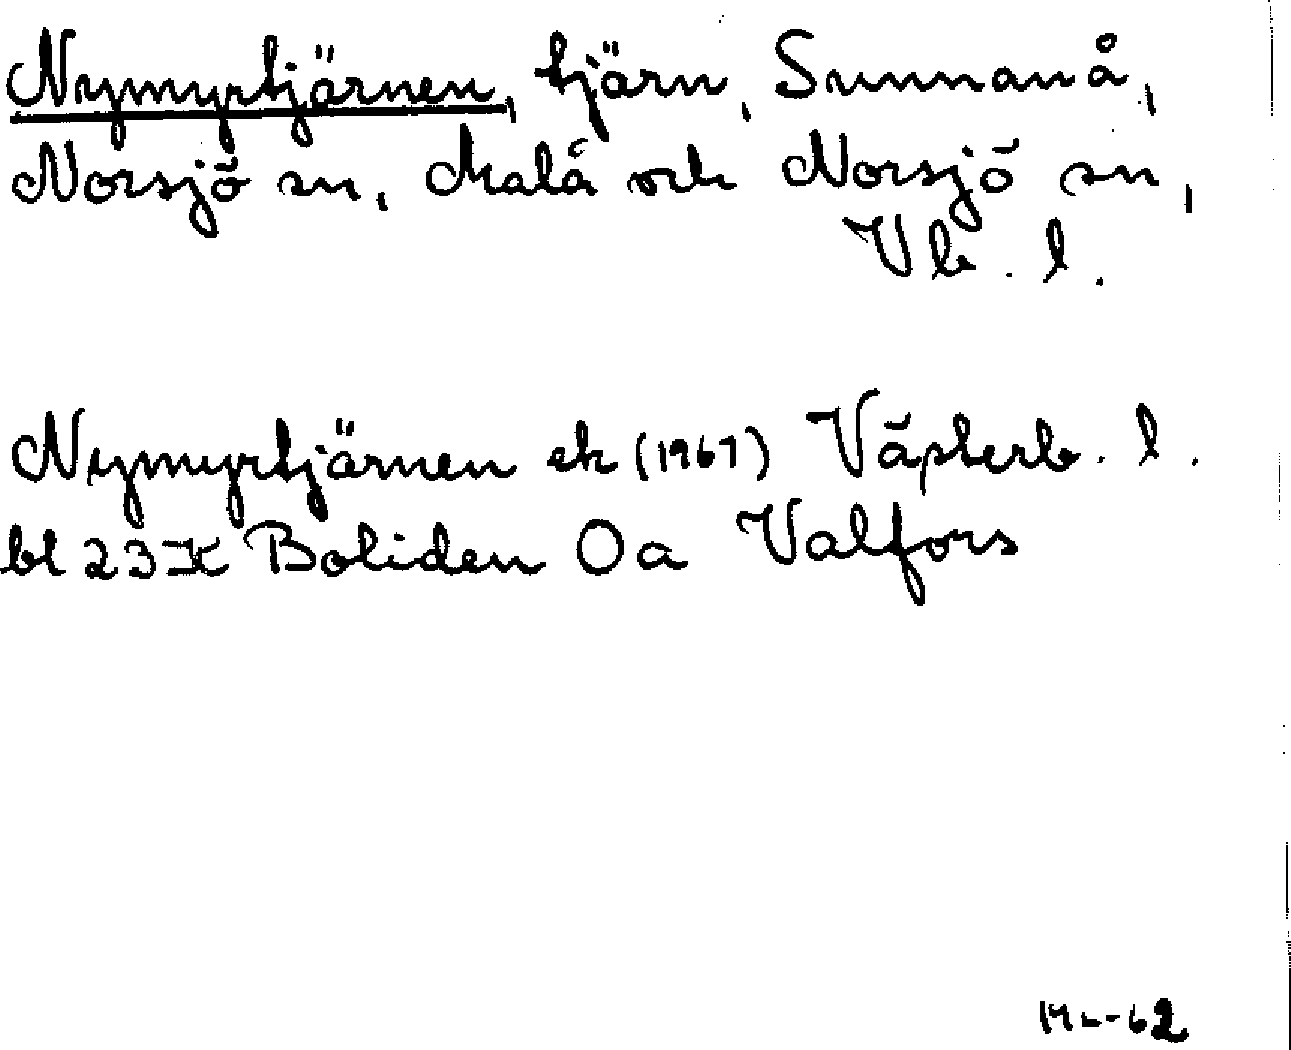 Nymyrtjärnen, tjärn, Sunnanå,
Norsjö sn, Malå och Norsjö sn,
Vb. l.
Nymyrtjärnen ek (1967) Västerb. l.
bl 23 K Boliden 0a Valfors